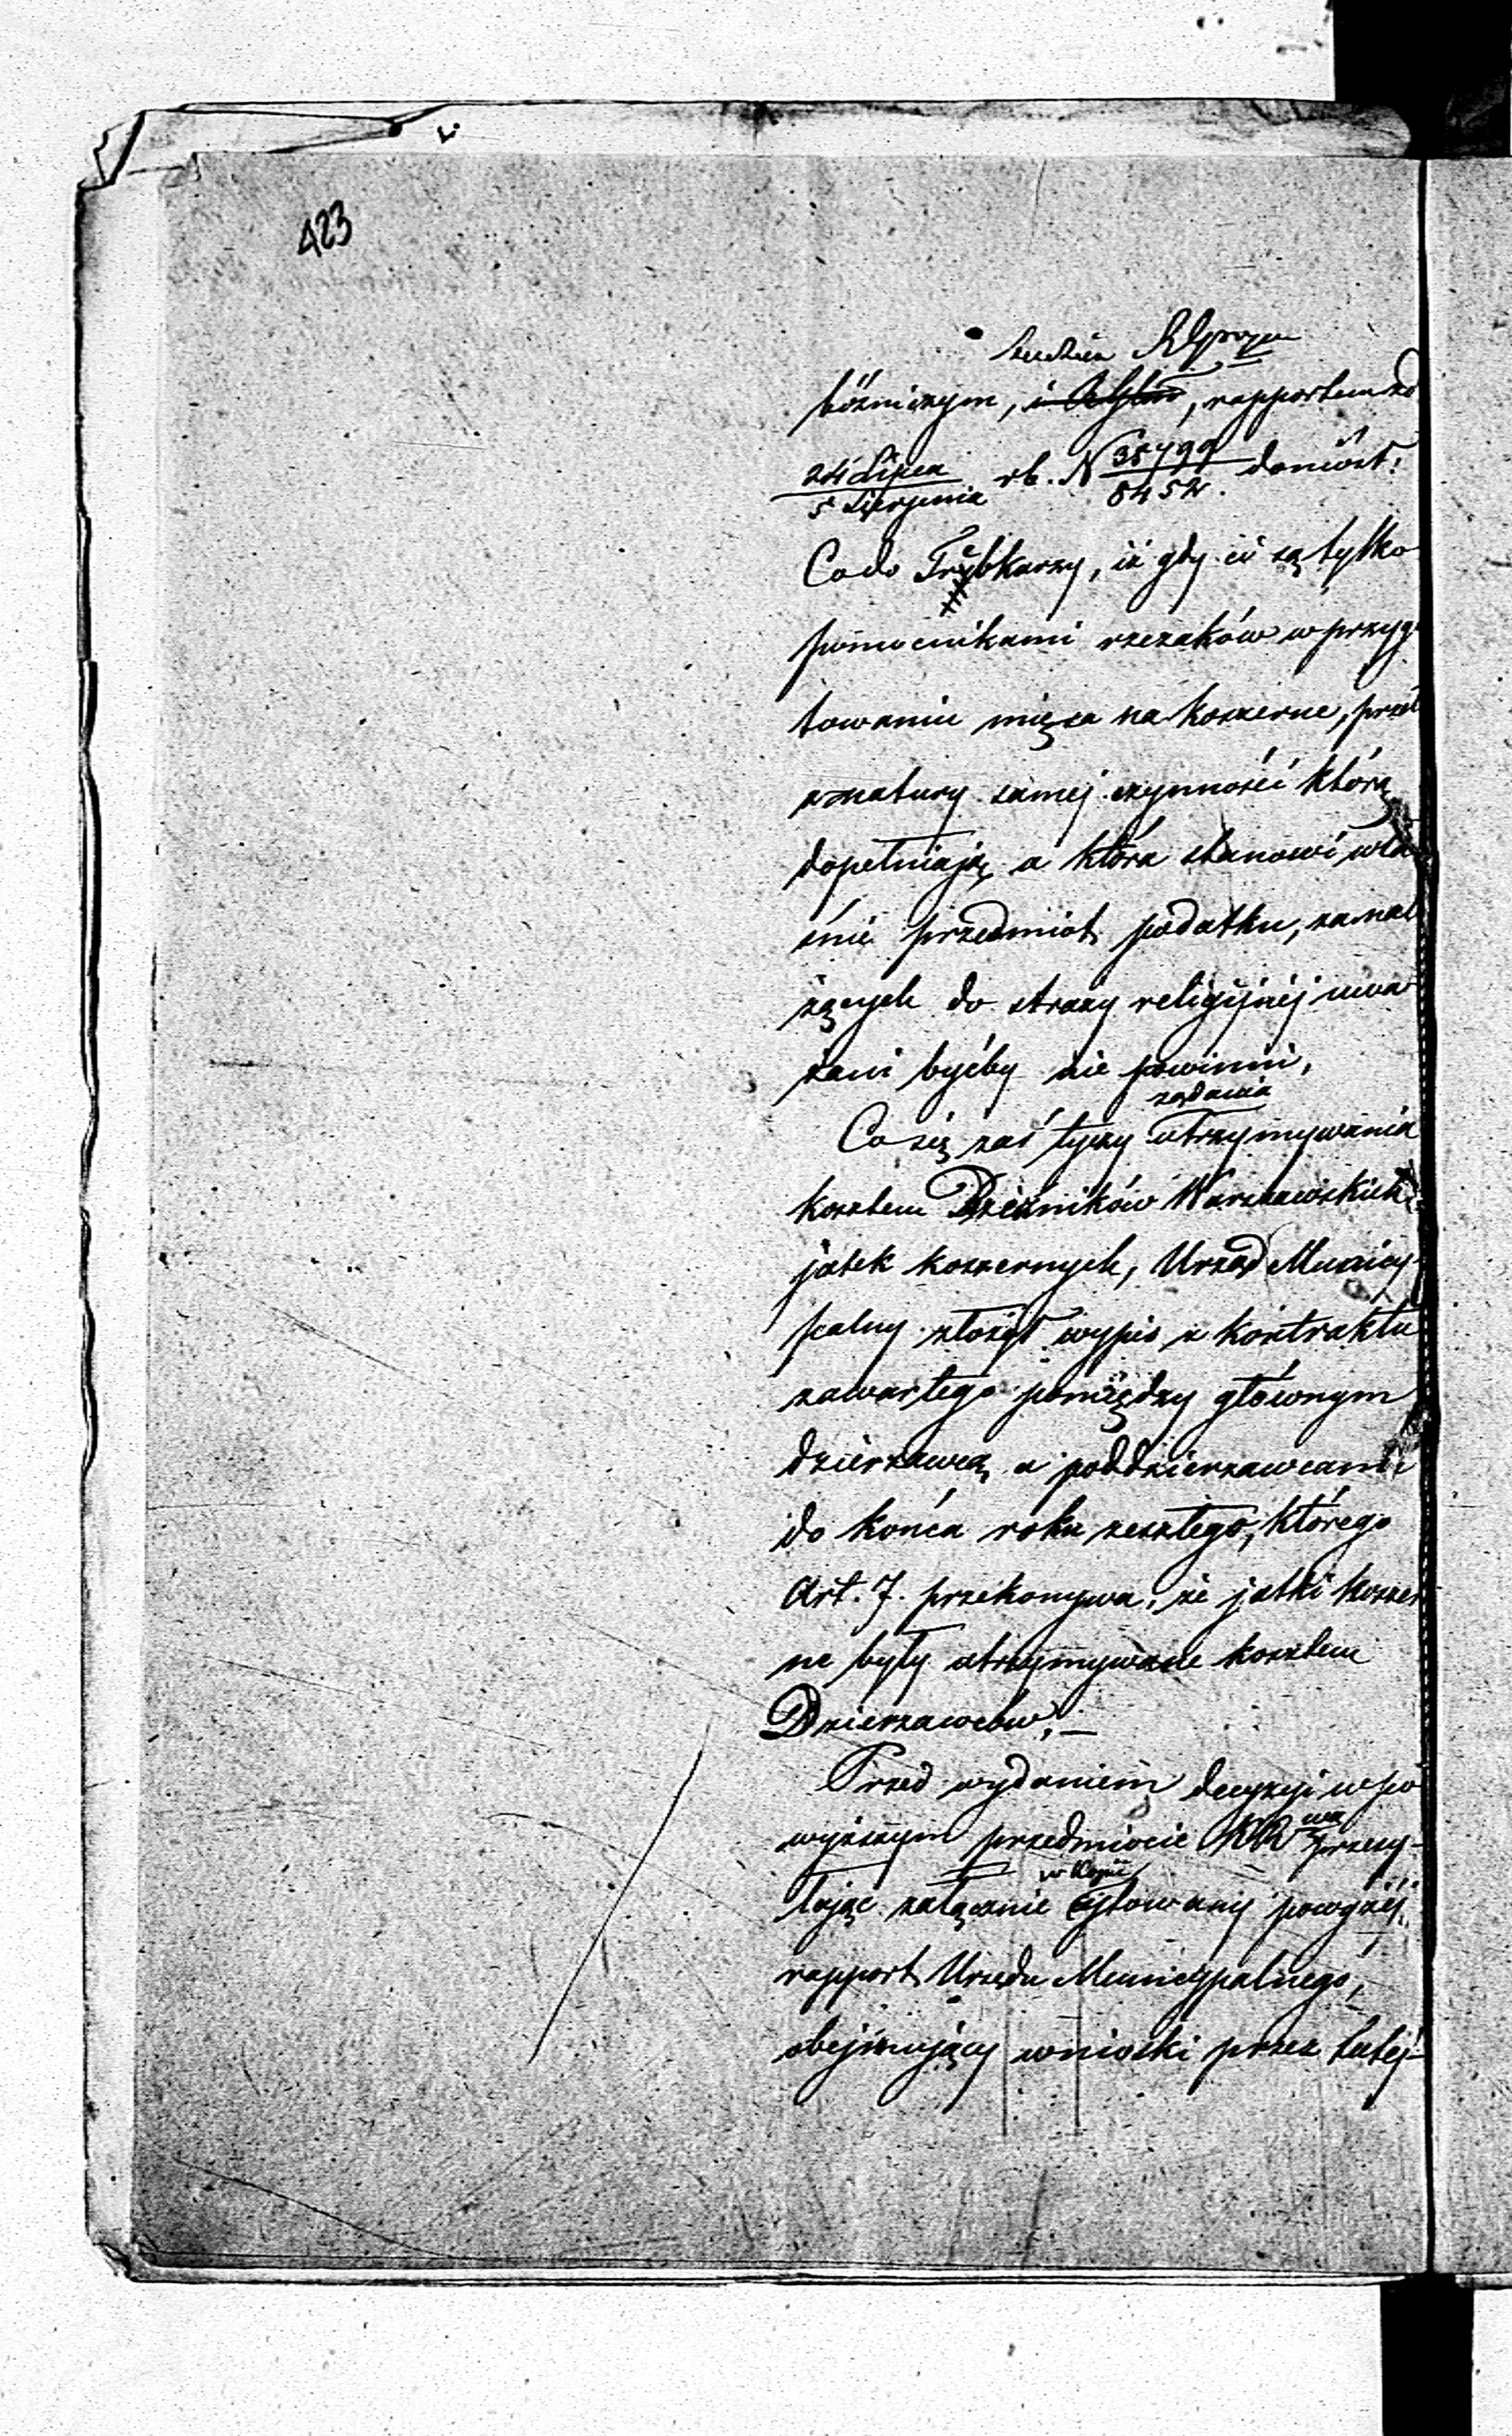 423
bóźniczym, rapportem zd
24 Lipca / 5 Sierpnia rb. N 35799 / 8452. doniósł:
Co do Trybkarzy, iż gdy ci są tylko
pomocnikami rzezaków w przygo
towaniu mięsa na koszerne, przeto
z natury samej czynności którą
dopełniają a która stanowi wła
śnie przedmiot podatku, za nale
żących do straży religijnéj uwa
żani byćby nie powinni,
żądania
Co się zaś tyczy utrzymywania
kosztem Rzeźników Warszawskich
jatek koszernych, Urząd Municy-
palny złożył wypis z kontraktu
zawartego pomiędzy głównym
dzierżawcą a poddzierżawcami
do końca roku zeszłego, którego
Art. 7. przekonywa, że jatki koszer
ne były utrzymywane kosztem
Dzierżawców. —
Przed wydaniem decyzyi w po
wyższym przedmiocie KR przesy-
w Kopii
łając załącznie cytowany powyżéj
rapport Urzędu Municypalnego,
obejmujący wnioski przez tutéj-